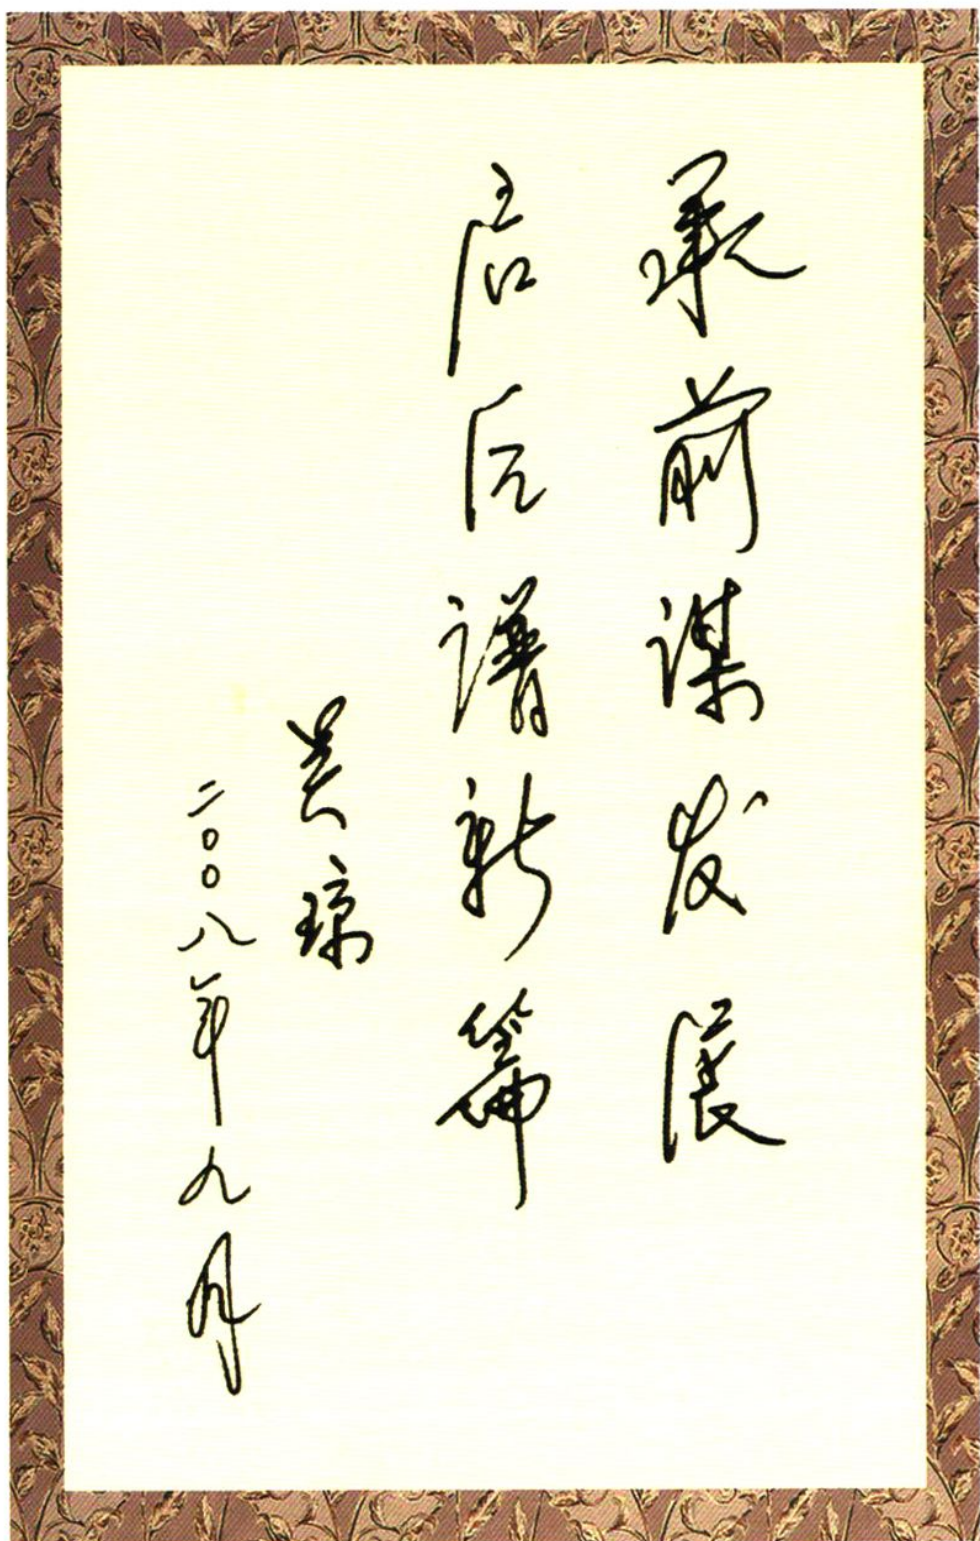 承前谋发展
启后谱新篇
吴琼
二〇〇八年九月